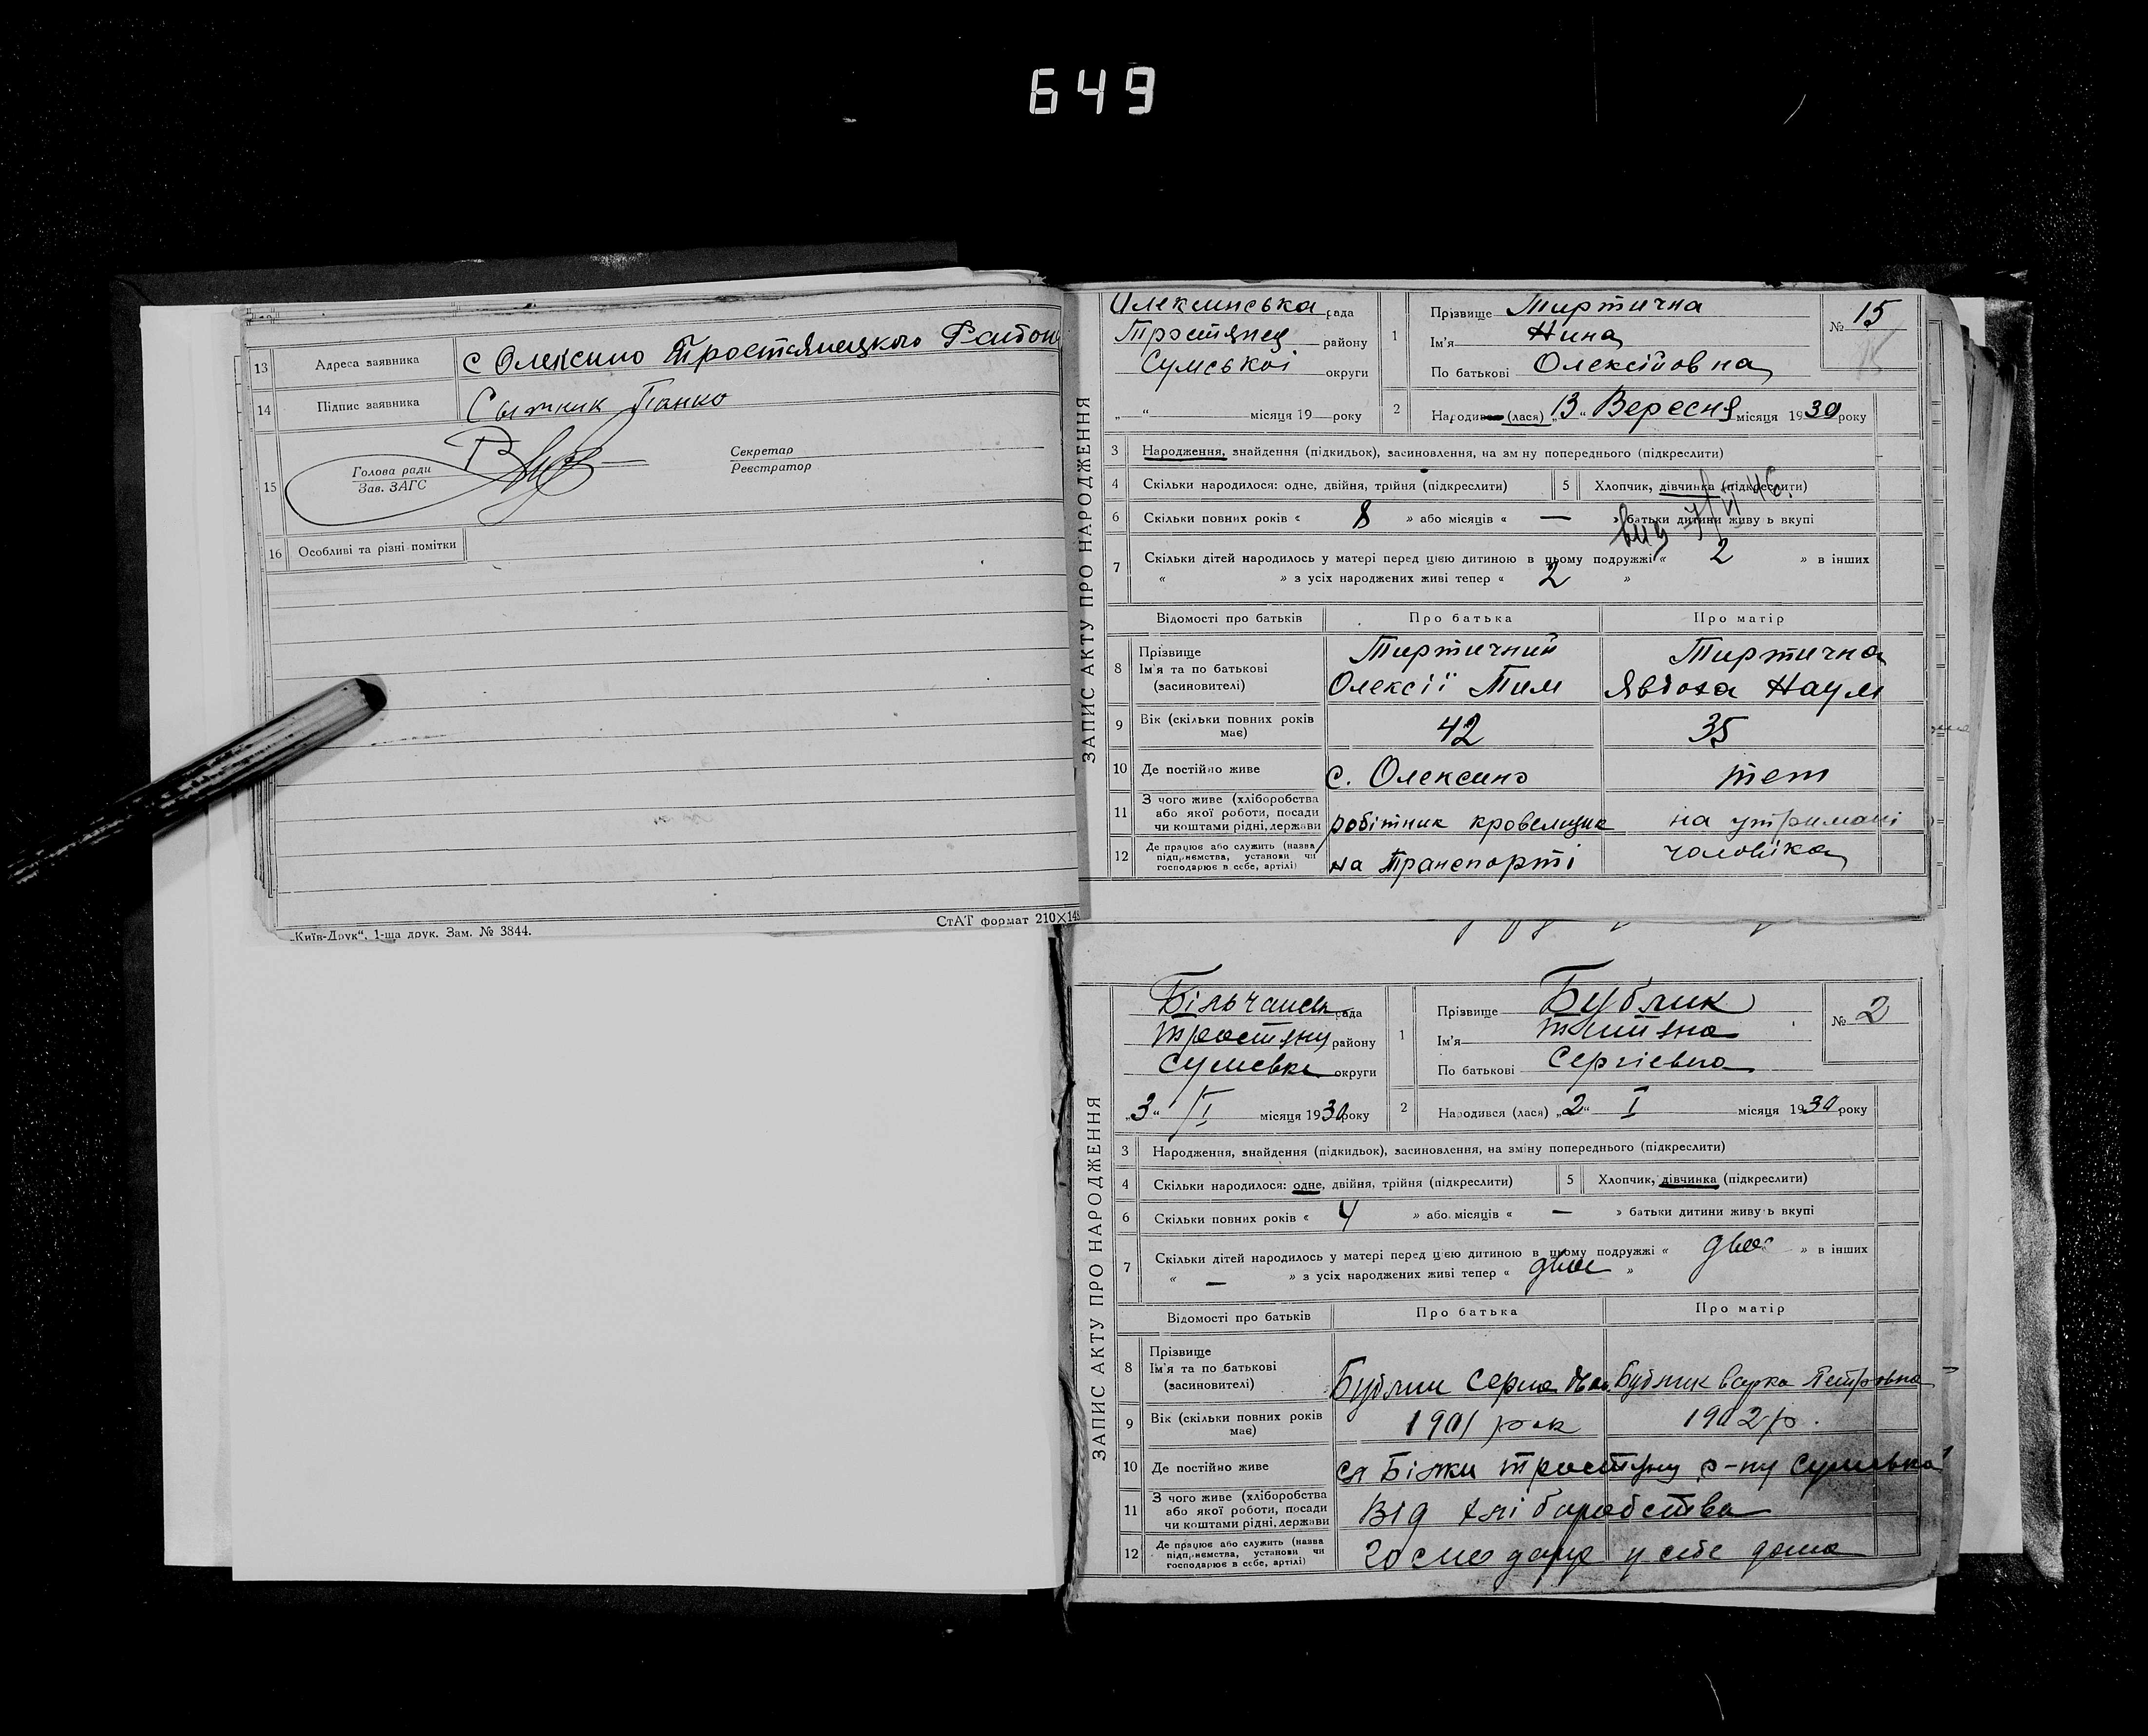 649
13 Адреса заявника с Олексино Тростянецкого Району
14 Підпис заявника Сытник Панко
15 Голова ради
Зав. ЗАГС
Секретар
Реєстратор
16 Особливі та різні помітки
„Київ-Друк“. 1-ша друк. Зам. № 3844.
СтАТ формат 210×148
ЗАПИС АКТУ ПРО НАРОДЖЕННЯ
Олексинська рада
Тростянец району
Сумської округи
„ “ місяця 19 року
1 Прізвище Тиртична
Ім'я Нина
По батькові Олексійовна
№ 15
2 Народився (лася) „13“ Вересня місяця 1930 року
3 Народження, знайдення (підкидьок), засиновлення, на зміну попереднього (підкреслити)
4 Скільки народилося: одне, двійня, трійня (підкреслити)
5 Хлопчик, дівчинка (підкреслити)
6 Скільки повних років « 8 » або місяців « — » батьки дитини живуть вкупі
7 Скільки дітей народилось у матері перед цією дитиною в цьому подружжі « 2 » в інших
« » з усіх народжених живі тепер « 2 »
Відомості про батьків Про батька Про матір
8 Прізвище
Ім'я та по батькові
(засиновителі)
Тиртичний Тиртична
Олексії Тим Явдоха Наум
9 Вік (скільки повних років має) 42 35
10 Де постійно живе с. Олексино тет
11 З чого живе (хліборобства
або якої роботи, посади
чи коштами рідні, держави
робітник кровелщик на утримані
12 Де працює або служить (назва
підприємства, установи чи
господарює в себе, артілі)
на транспорті чоловіка
ЗАПИС АКТУ ПРО НАРОДЖЕННЯ
Більчанськ рада
Тростян району
Сумськ округи
„3“ I місяця 1930 року
1 Прізвище Бублик
Ім'я
По батькові Сергіевна
№ 2
2 Народився (лася) „2“ I місяця 1930 року
3 Народження, знайдення (підкидьок), засиновлення, на зміну попереднього (підкреслити)
4 Скільки народилося: одне, двійня, трійня (підкреслити)
5 Хлопчик, дівчинка (підкреслити)
6 Скільки повних років « 4 » або місяців « — » батьки дитини живуть вкупі
7 Скільки дітей народилось у матері перед цією дитиною в цьому подружжі « двое » в інших
« — » з усіх народжених живі тепер « двое »
Відомості про батьків Про батька Про матір
8 Прізвище
Ім'я та по батькові
(засиновителі)
Бублик Бублик Варка Петровна
9 Вік (скільки повних років має) 1901 рок 1902 р.
10 Де постійно живе ся Білки Тростян р-ну Сумська
11 З чого живе (хліборобства
або якої роботи, посади
чи коштами рідні, держави
Від хліборобства
12 Де працює або служить (назва
підприємства, установи чи
господарює в себе, артілі)
господарує у себе дома